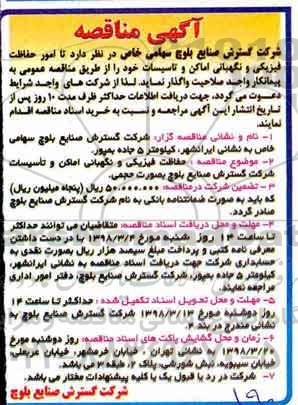 آگهی مناقصه
شرکت گسترش صنایع بلوچ سهامی خاص در نظر دارد تا امور حفاظت
فیزیکی و نگهبانی اماکن و تاسیسات خود را از طریق مناقصه عمومی به
پیمانکار واجد صلاحیت واگذار نماید. لذا از شرکت های واجد شرایط
دعوت می گردد، جهت دریافت اطلاعات حداکثر ظرف مدت ۱۰ روز پس از
تاریخ انتشار این آگهی مراجعه و نسبت به خرید اسناد مناقصه اقدام
نمایند.
۱- نام و نشانی مناقصه گزار: شرکت گسترش صنایع بلوچ سهامی
خاص به نشانی ایرانشهر، کیلومتر ۵ جاده بمپور.
۲- موضوع مناقصه: حفاظت فیزیکی و نگهبانی اماکن و تاسیسات
شرکت گسترش صنایع بلوچ بصورت حجمی.
۳- تضمین شرکت درمناقصه: ۵۰.۰۰۰.۰۰۰ ریال (پنجاه میلیون ریال)
که باید به صورت ضمانتنامه بانکی به نام شرکت گسترش صنایع بلوچ
صادر گردد.
۴- مهلت و محل دریافت اسناد مناقصه: متقاضیان می توانند حداکثر
تا ساعت ۱۴ روز شنبه مورخ ۱۳۹۸/۲/۴ با در دست داشتن
معرفی نامه کتبی و پرداخت مبلغ سیصد هزار ریال بصورت نقدی به
حسابداری شرکت جهت دریافت اسناد مناقصه به نشانی ایرانشهر،
کیلومتر ۵ جاده بمپور، شرکت گسترش صنایع بلوچ، دفتر امور اداری
مراجعه نمایند.
۵- مهلت و محل تحویل اسناد تکمیل شده: حداکثر تا ساعت ۱۴
روز دوشنبه مورخ ۱۳۹۸/۲/۱۳ شرکت گسترش صنایع بلوچ با
نشانی مندرج در بند ۴.
۶- زمان و محل گشایش پاکت های اسناد مناقصه: روز دوشنبه مورخ
به نشانی تهران، خیابان خرمشهر، خیابان عربعلی،
خیابان سیبویه، نبش شورشی، پلاک ۲، طبقه ۳ می باشد.
۷- شرکت در رد یا قبول یک یا کلیه پیشنهادات مختار می باشد.
شرکت گسترش صنایع بلوچ